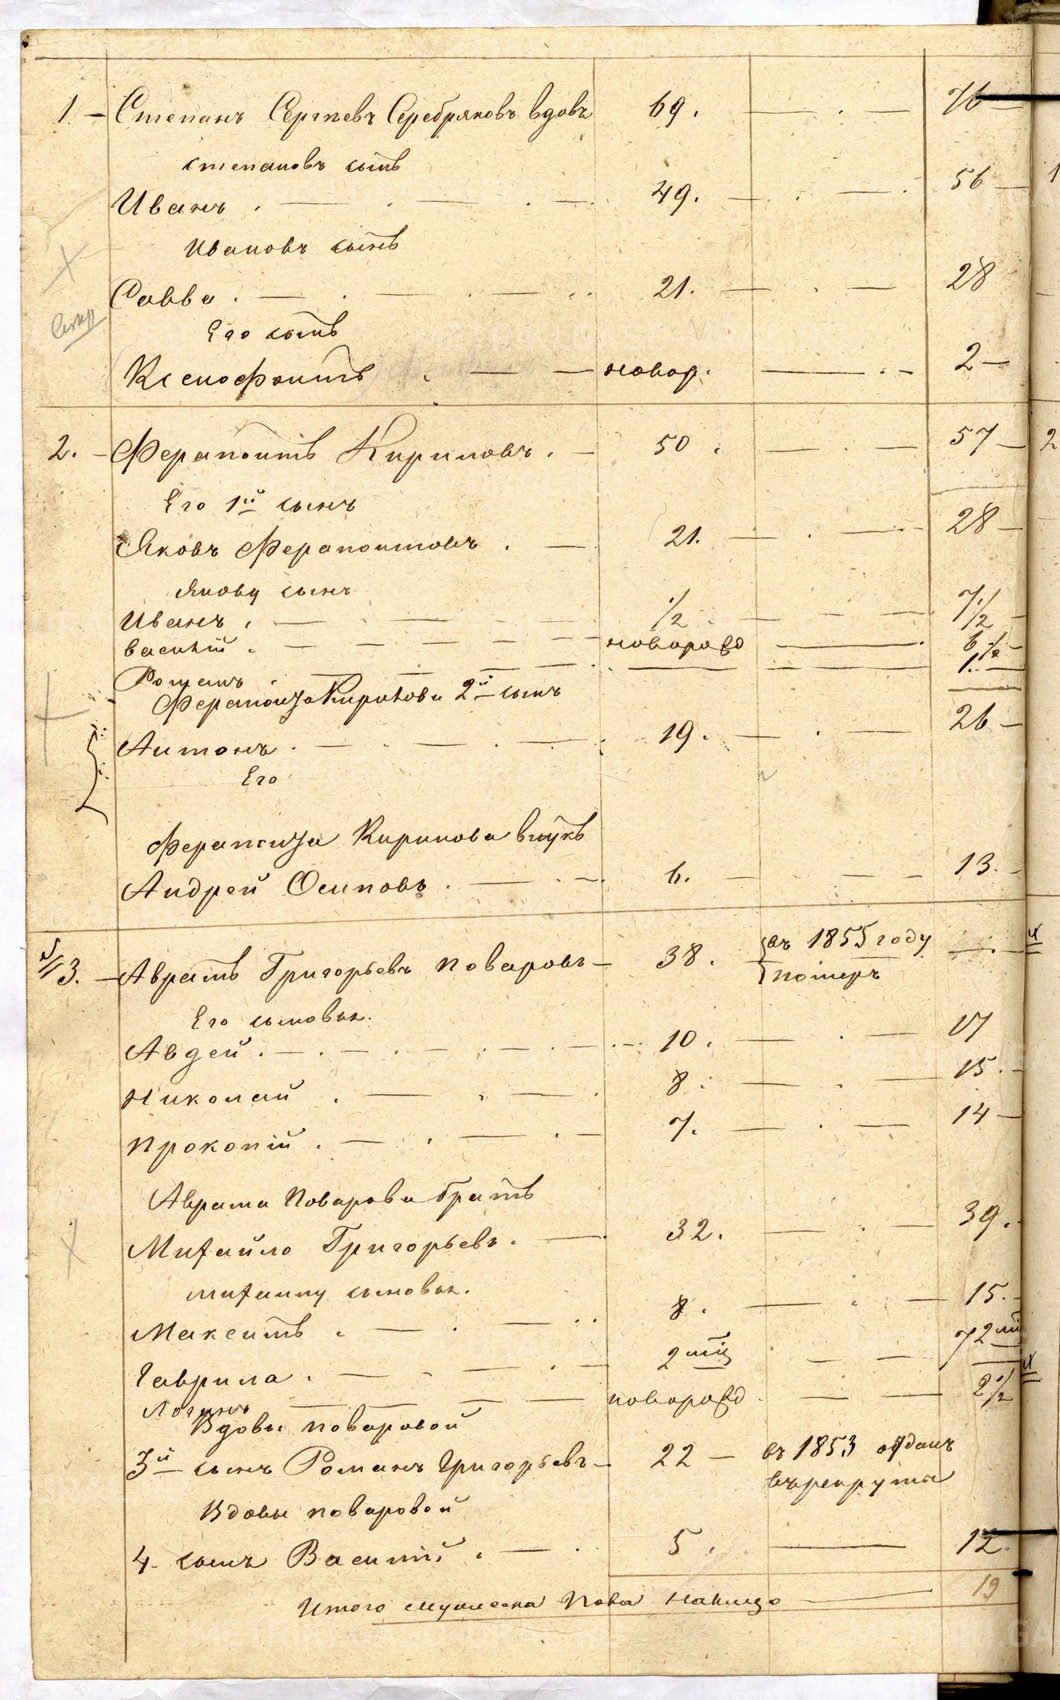 1 - Степанъ Сергѣевъ Серебряковъ вдовъ 69. — 76
степановъ сынъ
Иванъ . — 49. — 56 —
Ивановъ сынъ
Савва . — 21. — 28
Его сынъ
Ксенофонтъ . — новор. — 2 —
2. - Ферапонтъ Кириловъ . — 50 . — 57 —
Его 1й сынъ
Яковъ Ферапонтовъ . — 21. — 28 —
Якову сынъ
Иванъ . — 1/2 — 7 1/2
Василій . — новорожд —
Романъ —
Ферапонта Кирилова 2й сынъ
Антонъ . — 19. — 26 —
Его
Ферапонта Кирилова внукъ
Андрей Осиповъ . — 6. — 13.
3. - Аврамъ Григорьевъ Поваровъ — 38. въ 1855 году —
померъ
Его сыновья.
Авдей . — 10. — 17
Николай . — 8. — 15. —
Прокопій . — 7. — 14 —
Аврама Поварова братъ
Михайло Григорьевъ . — 32. — 39.
Михаилу сыновья.
Максимъ . — 8. — 15. —
Гаврила . — 2 —
Логинъ — новорожд — 2 1/2
Вдовы Поваровой
3й сынъ Романъ Григорьевъ — 22 — въ 1853 отданъ
въ рекруты
Вдовы Поваровой
4. сынъ Василій . — 5. — 12.
Итого мужеска пола налицо — 19